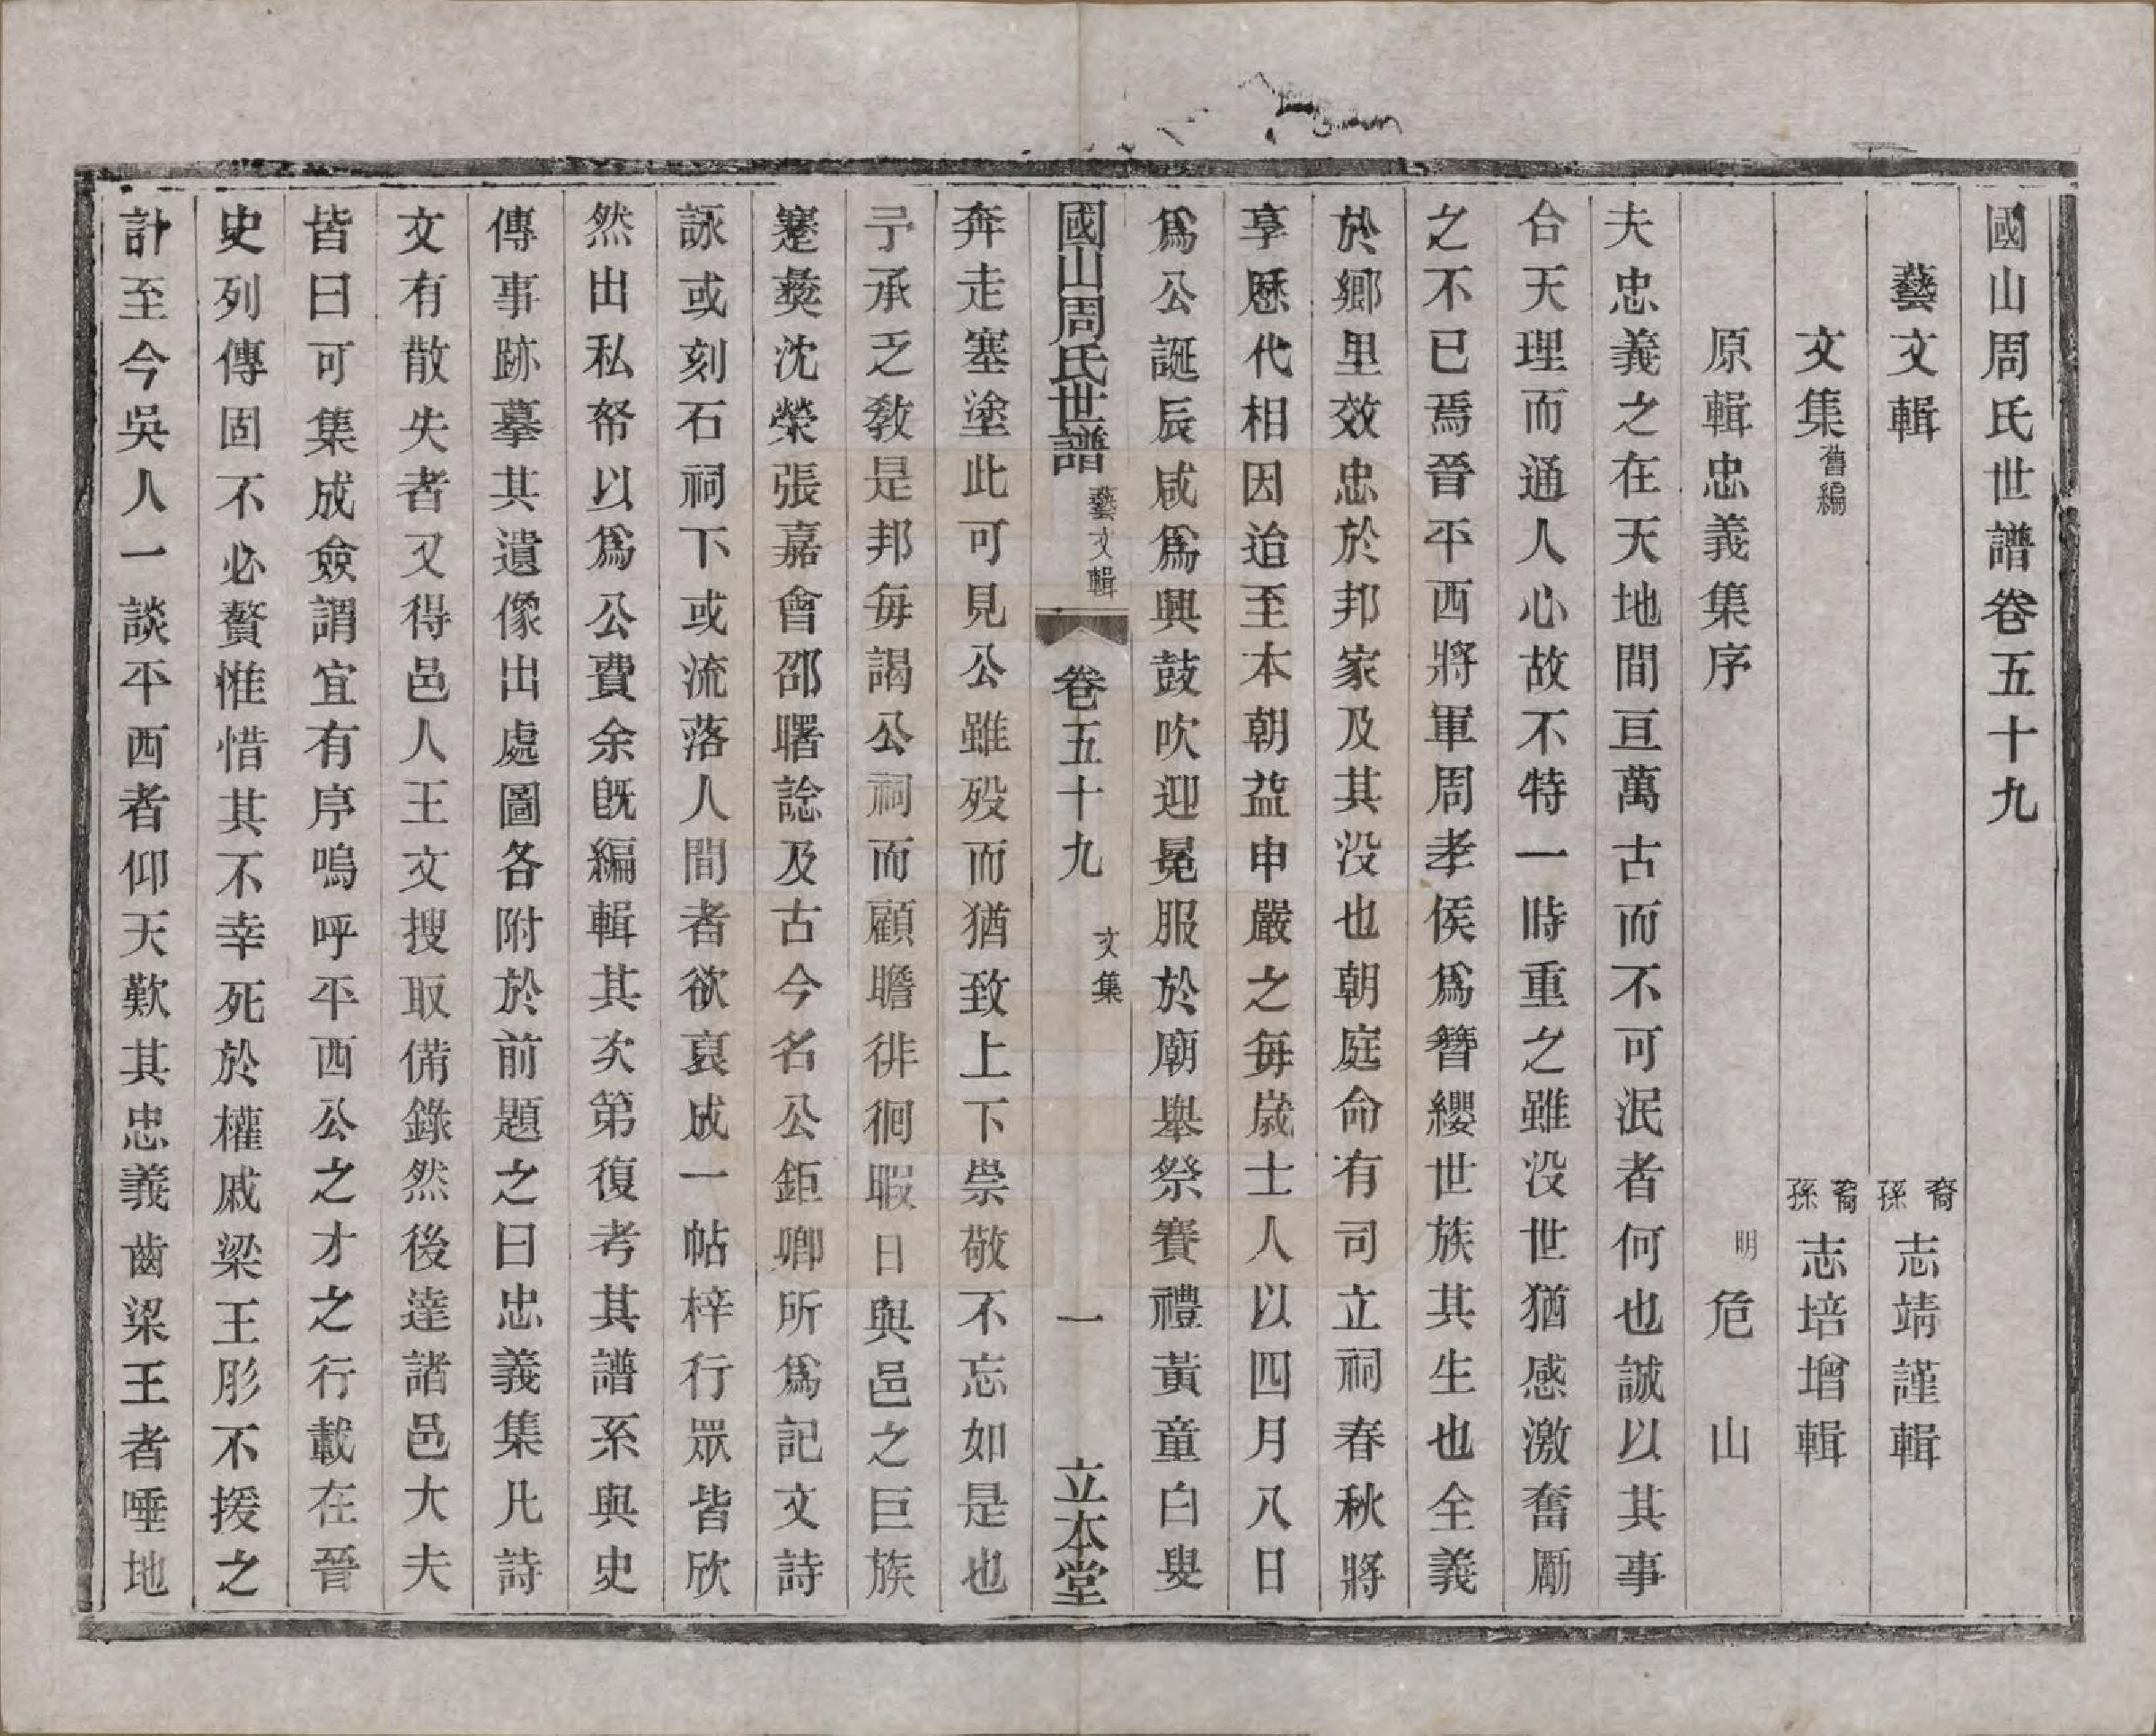 國山周氏世譜卷五十九
藝文輯　裔孫志靖謹輯
文集舊編　裔孫志培增輯
原輯忠義集序　明危山
夫忠義之在天地間亘萬古而不可泯者何也誠以其事
合天理而通人心故不特一時重之雖没世猶感激奮勵
之不已焉晉平西將軍周孝侯爲簪纓世族其生也全義
於鄉里效忠於邦家及其没也朝庭命有司立祠春秋將
享歷代相因迨至本朝益申嚴之每歲士人以四月八日
爲公誕辰咸爲輿鼓吹迎冕服於廟舉祭賽禮黃童白叟
國山周氏世譜　藝文輯　卷五十九　文集　一　立本堂
奔走塞塗此可見公雖殁而猶致上下崇敬不忘如是也
予承乏敎是邦每謁公祠而顧瞻徘徊暇日與邑之巨族
蹇彝沈榮張嘉會邵曙諗及古今名公鉅卿所爲記文詩
詠或刻石祠下或流落人間者欲裒成一帖梓行眾皆欣
然出私帑以爲公費余旣編輯其次第復考其譜系與史
傳事跡摹其遺像出處圖各附於前題之曰忠義集凡詩
文有散失者又得邑人王文搜取備錄然後達諸邑大夫
皆曰可集成僉謂宜有序嗚呼平西公之才之行載在晉
史列傳固不必贅惟惜其不幸死於權戚梁王肜不援之
計至今吳人一談平西者仰天歎其忠義齒梁王者唾地